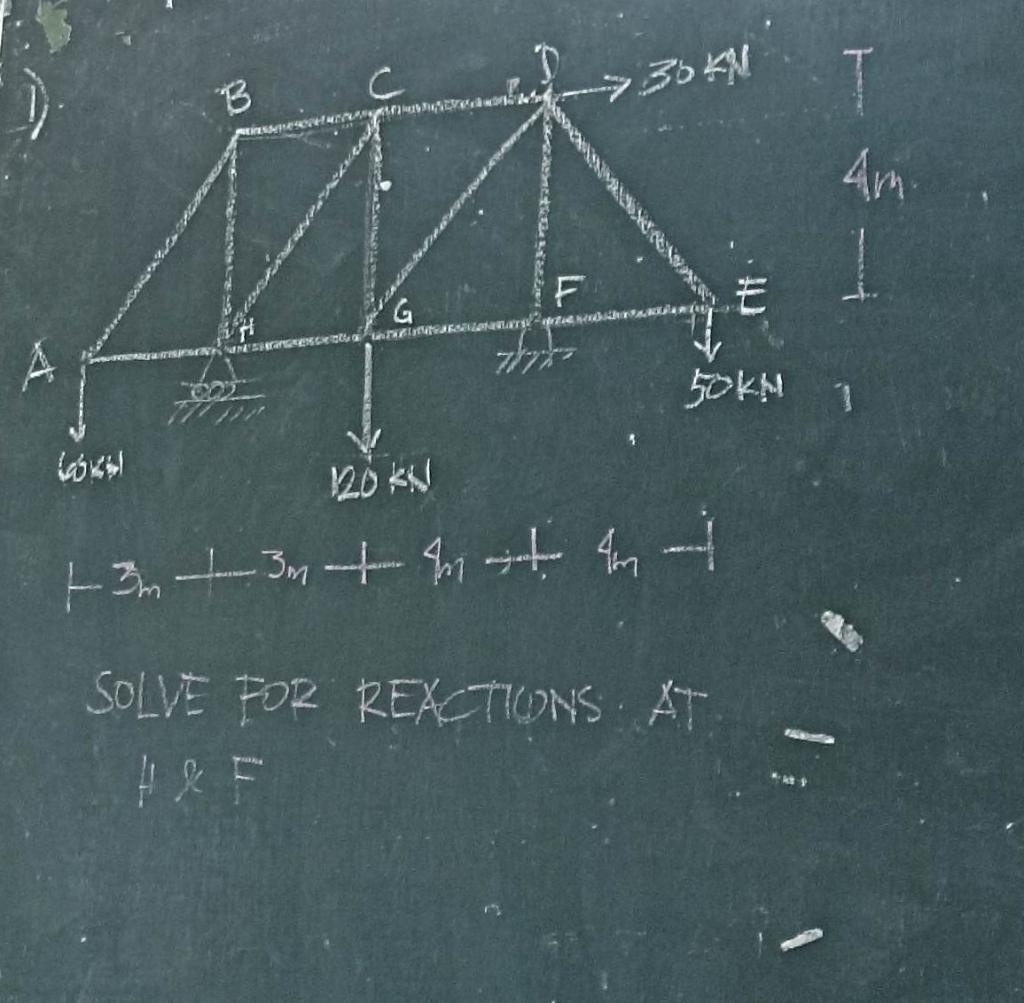 1)
B
C
D
30 KN
4m
A
H
G
F
E
60KN
120 KN
50KN
3m
3m
4m
4m
SOLVE FOR REACTIONS AT
H & F